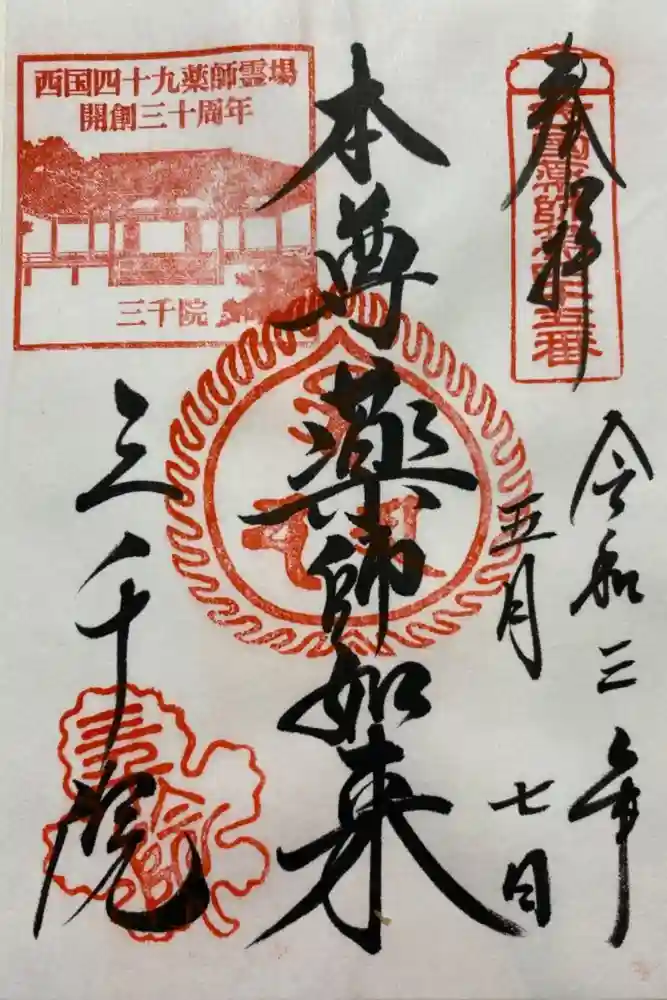 奉拝
西国薬師第四十五番
令和三年
五月
七日
本尊薬師如来
西国四十九薬師霊場
開創三十周年
三千院
三千院